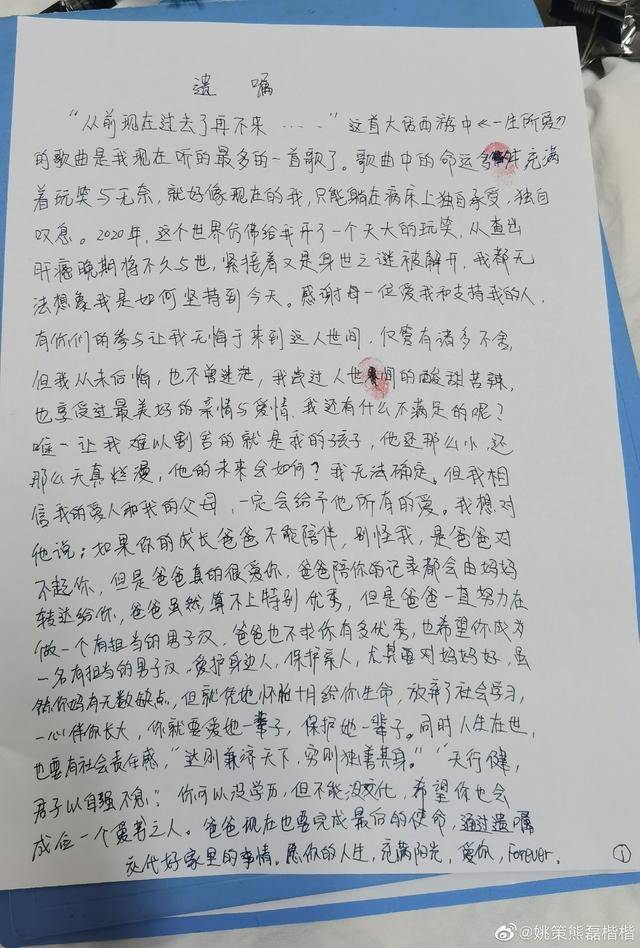 遗嘱
"从前现在过去了再不来……"这首大话西游中《一生所爱》
的歌曲是我现在听的最多的一首歌了。歌曲中的命运多 充满
着玩笑与无奈，就好像现在的我，只能躺在病床上独自承受，独自
叹息。2020年，这个世界仿佛给我开了一个天大的玩笑，从查出
肝癌晚期将不久与世，紧接着又是身世之谜被解开，我都无
法想象我是如何坚持到今天。感谢每一位爱我和支持我的人，
有你们的参与让我无悔于来到这人世间，仅管有诸多不舍，
但我从未后悔，也不曾迷茫，我尝过人世间的酸甜苦辣，
也享受过最美好的亲情与爱情，我还有什么不满足的呢？
唯一让我难以割舍的就是我的孩子，他还那么小，还
那么天真烂漫，他的未来会如何？我无法确定。但我相
信我的爱人和我的父母，一定会给予他所有的爱。我想对
他说：如果你的成长爸爸不能陪伴，别怪我，是爸爸对
不起你，但是爸爸真的很爱你，爸爸陪你的记录都会由妈妈
转达给你，爸爸虽然算不上特别优秀，但是爸爸一直努力在
做一个有担当的男子汉，爸爸也不求你有多优秀，也希望你成为
一名有担当的男子汉，爱护身边人，保护亲人，尤其要对妈妈好，虽
然你妈有无数缺点，但就凭她怀胎十月给你生命，放弃了社会学习，
一心伴你长大，你就要爱她一辈子，保护她一辈子。同时人生在世，
也要有社会责任感，"达则兼济天下，穷则独善其身。""天行健，
君子以自强不息"。你可以没学历，但不能没文化，希望你也会
成位一个爱善之人。爸爸现在也要完成最后的使命，通过遗嘱
交代好家里的事情。愿你的人生，充满阳光，爱你，Forever.
①
@姚策熊磊楷楷